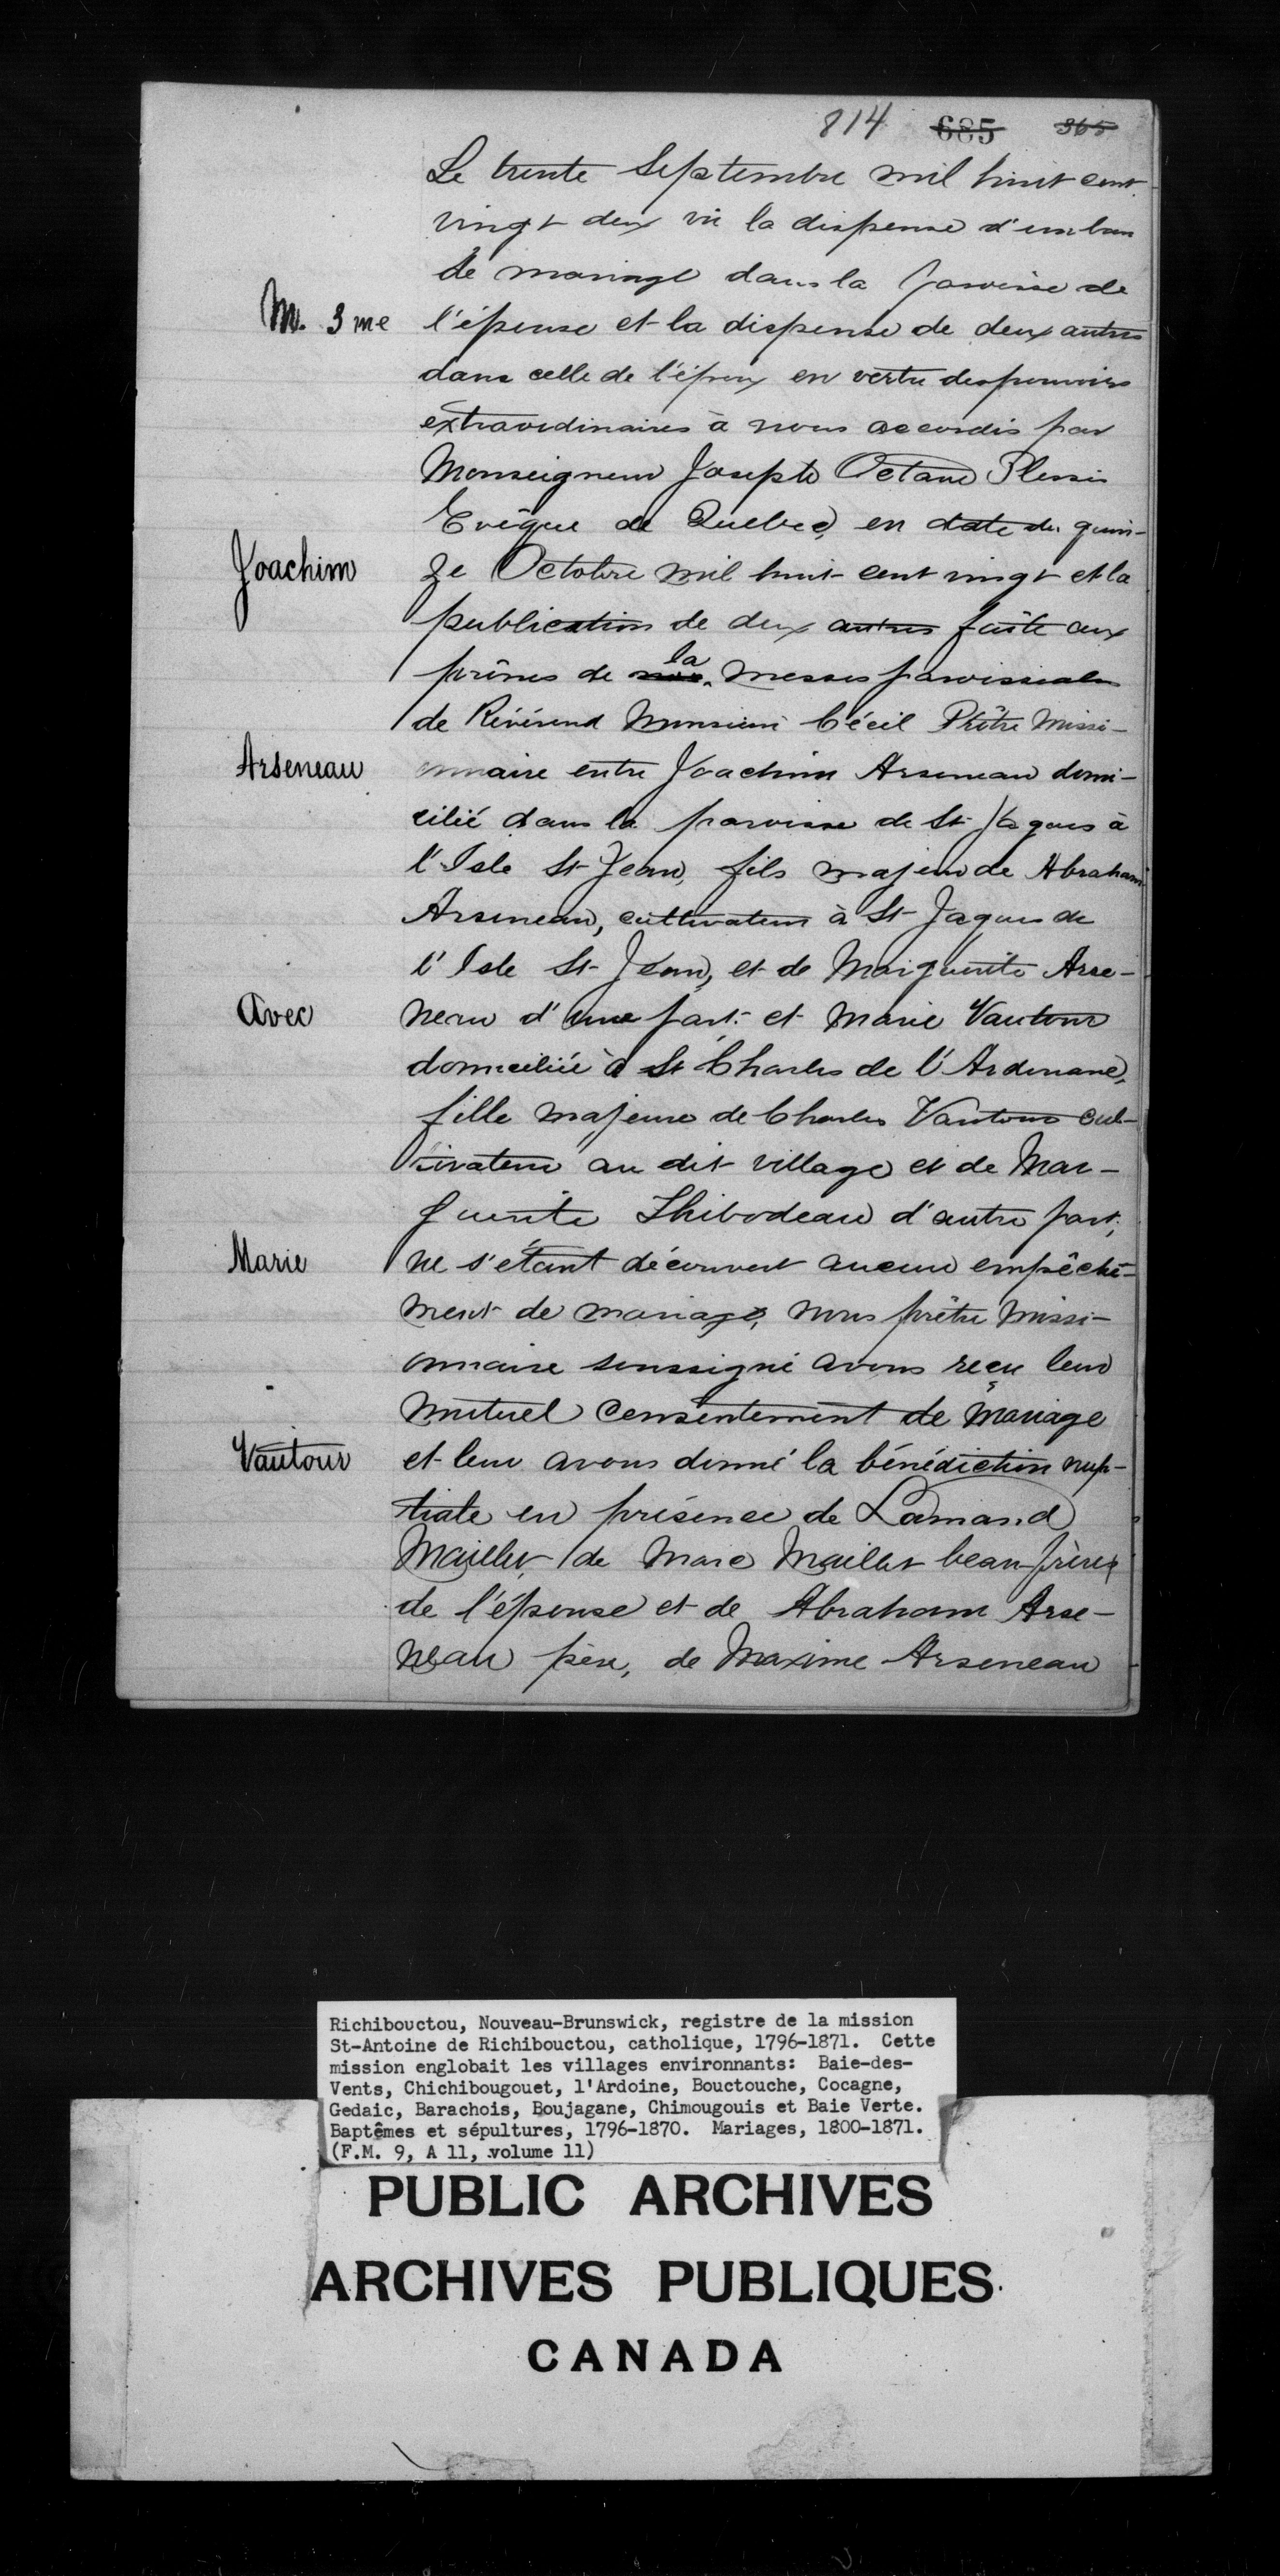 814 685 365
Le trente Septembre mil huit cent
vingt deux vu la dispense d'un ban
de mariage dans la paroisse de
M. 3me
l'épouse et la dispense de deux autres
dans celle de l'époux en vertu des pouvoirs
extraordinaires à nous accordés par
Monseigneur Joseph Octave Plessis
Evêque de Québec, en date du quin-
Joachim
ze Octobre mil huit cent vingt et la
publication de deux autres faite aux
prônes de la messes paroissiales
de Révérend Monsieur Cécil Prêtre Missi-
Arseneau
onnaire entre Joachim Arseneau domi-
cilié dans la paroisse de St Jaques à
l'Isle St Jean, fils majeur de Abraham
Arseneau, cultivateur à St Jaques de
l'Isle St Jean, et de Marguerite Arse-
Avec
neau d'une part et Marie Vautour
domiciliée à St Charles de l'Ardouane,
fille majeure de Charles Vautour cul-
tivateur au dit village et de Mar-
guerite Thibodeau d'autre part,
Marie
ne s'étant découvert aucun empêche-
ment de mariage, nous prêtre missi-
onnaire soussigné avons reçu leur
mutuel consentement de mariage
Vautour
et leur avons donné la bénédiction nup-
tiale en présence de Lamand
Maillet, de Marc Maillet beau-frères
de l'épouse et de Abraham Arse-
neau père, de Maxime Arseneau
Richibouctou, Nouveau-Brunswick, registre de la mission
St-Antoine de Richibouctou, catholique, 1796-1871. Cette
mission englobait les villages environnants: Baie-des-
Vents, Chichibougouet, l'Ardoine, Bouctouche, Cocagne,
Gedaic, Barachois, Boujagane, Chimougouis et Baie Verte.
Baptêmes et sépultures, 1796-1870. Mariages, 1800-1871.
(F.M. 9, A 11, volume 11)
PUBLIC ARCHIVES
ARCHIVES PUBLIQUES
CANADA